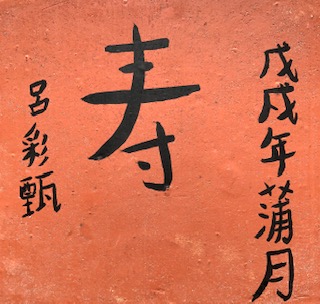 戊戌年蒲月
寿
呂彩甄